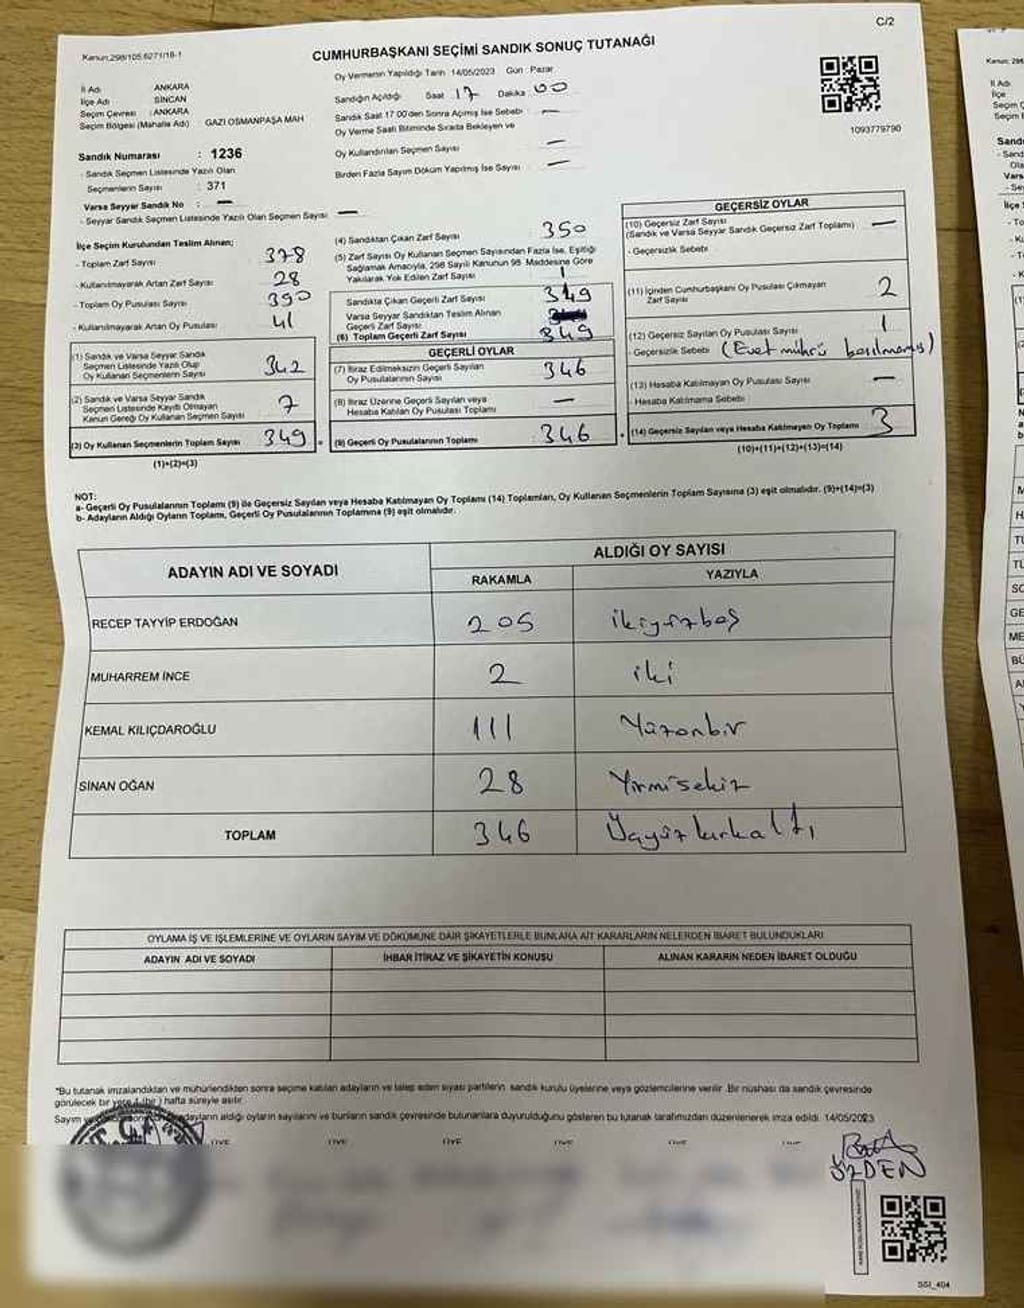 C/2
Kanun:298/105.6271/18-1
CUMHURBAŞKANI SEÇİMİ SANDIK SONUÇ TUTANAĞI
İl Adı ANKARA
İlçe Adı SİNCAN
Seçim Çevresi : ANKARA
Seçim Bölgesi (Mahalle Adı) GAZİ OSMANPAŞA MAH
Sandık Numarası : 1236
- Sandık Seçmen Listesinde Yazılı Olan
Seçmenlerin Sayısı : 371
Varsa Seyyar Sandık No : —
- Seyyar Sandık Seçmen Listesinde Yazılı Olan Seçmen Sayısı —
Oy Vermenin Yapıldığı Tarih 14/05/2023 Gün : Pazar
Sandığın Açıldığı Saat 17 Dakika 00
Sandık Saat 17.00'den Sonra Açmış İse Sebebi —
Oy Verme Saati Bitiminde Sırada Bekleyen ve
Oy Kullandırılan Seçmen Sayısı —
Birden Fazla Sayım Döküm Yapılmış İse Sayısı —
1093779790
İlçe Seçim Kurulundan Teslim Alınan;
- Toplam Zarf Sayısı 378
- Kullanılmayarak Artan Zarf Sayısı 28
- Toplam Oy Pusulası Sayısı 390
- Kullanılmayarak Artan Oy Pusulası 41
(1) Sandık ve Varsa Seyyar Sandık
Seçmen Listesinde Yazılı Olup
Oy Kullanan Seçmenlerin Sayısı 342
(2) Sandık ve Varsa Seyyar Sandık
Seçmen Listesinde Kayıtlı Olmayan
Kanun Gereği Oy Kullanan Seçmen Sayısı 7
(3) Oy Kullanan Seçmenlerin Toplam Sayısı 349
(1)+(2)=(3)
(4) Sandıktan Çıkan Zarf Sayısı 350
(5) Zarf Sayısı Oy Kullanan Seçmen Sayısından Fazla İse, Eşitliği
Sağlamak Amacıyla, 298 Sayılı Kanunun 98. Maddesine Göre
Yakılarak Yok Edilen Zarf Sayısı 1
Sandıkta Çıkan Geçerli Zarf Sayısı 349
Varsa Seyyar Sandıktan Teslim Alınan
Geçerli Zarf Sayısı
(6) Toplam Geçerli Zarf Sayısı 349
GEÇERLİ OYLAR
(7) İtiraz Edilmeksizin Geçerli Sayılan
Oy Pusulalarının Sayısı 346
(8) İtiraz Üzerine Geçerli Sayılan veya
Hesaba Katılan Oy Pusulası Toplamı —
(9) Geçerli Oy Pusulalarının Toplamı 346
GEÇERSİZ OYLAR
(10) Geçersiz Zarf Sayısı
(Sandık ve Varsa Seyyar Sandık Geçersiz Zarf Toplamı) —
- Geçersizlik Sebebi
(11) İçinden Cumhurbaşkanı Oy Pusulası Çıkmayan
Zarf Sayısı 2
(12) Geçersiz Sayılan Oy Pusulası Sayısı 1
- Geçersizlik Sebebi (Evet mührü basılmamış)
(13) Hesaba Katılmayan Oy Pusulası Sayısı —
- Hesaba Katılmama Sebebi
(14) Geçersiz Sayılan veya Hesaba Katılmayan Oy Toplamı 3
(10)+(11)+(12)+(13)=(14)
NOT:
a- Geçerli Oy Pusulalarının Toplamı (9) ile Geçersiz Sayılan veya Hesaba Katılmayan Oy Toplamı (14) Toplamları, Oy Kullanan Seçmenlerin Toplam Sayısına (3) eşit olmalıdır. (9)+(14)=(3)
b- Adayların Aldığı Oyların Toplamı, Geçerli Oy Pusulalarının Toplamına (9) eşit olmalıdır.
ADAYIN ADI VE SOYADI
ALDIĞI OY SAYISI
RAKAMLA YAZIYLA
RECEP TAYYİP ERDOĞAN 205 ikiyüzbeş
MUHARREM İNCE 2 iki
KEMAL KILIÇDAROĞLU 111 Yüzonbir
SİNAN OĞAN 28 Yirmisekiz
TOPLAM 346 Üçyüzkırkaltı
OYLAMA İŞ VE İŞLEMLERİNE VE OYLARIN SAYIM VE DÖKÜMÜNE DAİR ŞİKAYETLERLE BUNLARA AİT KARARLARIN NELERDEN İBARET BULUNDUKLARI
ADAYIN ADI VE SOYADI İHBAR İTİRAZ VE ŞİKAYETİN KONUSU ALINAN KARARIN NEDEN İBARET OLDUĞU
*Bu tutanak imzalandıktan ve mühürlendikten sonra seçime katılan adayların ve talep eden siyasi partilerin, sandık kurulu üyelerine veya gözlemcilerine verilir. Bir nüshası da sandık çevresinde
görülecek bir yere 1 (bir) hafta süreyle asılır.
Sayım adayların aldığı oyların sayılarını ve bunların sandık çevresinde bulunanlara duyurulduğunu gösteren bu tutanak tarafımızdan düzenlenerek imza edildi. 14/05/2023
ÜYE ÜYE ÜYE ÜYE ÜYE
ÖZDEN
SSI_404